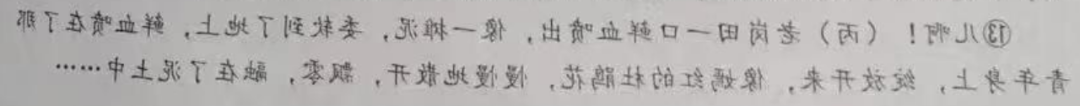 ⑬儿啊！（丙）老岗田一口鲜血喷出，像一摊泥，委软到了地上，鲜血喷在了那
青年身上，绽放开来，像嫣红的杜鹃花，慢慢地散开，飘零，融在了泥土中……